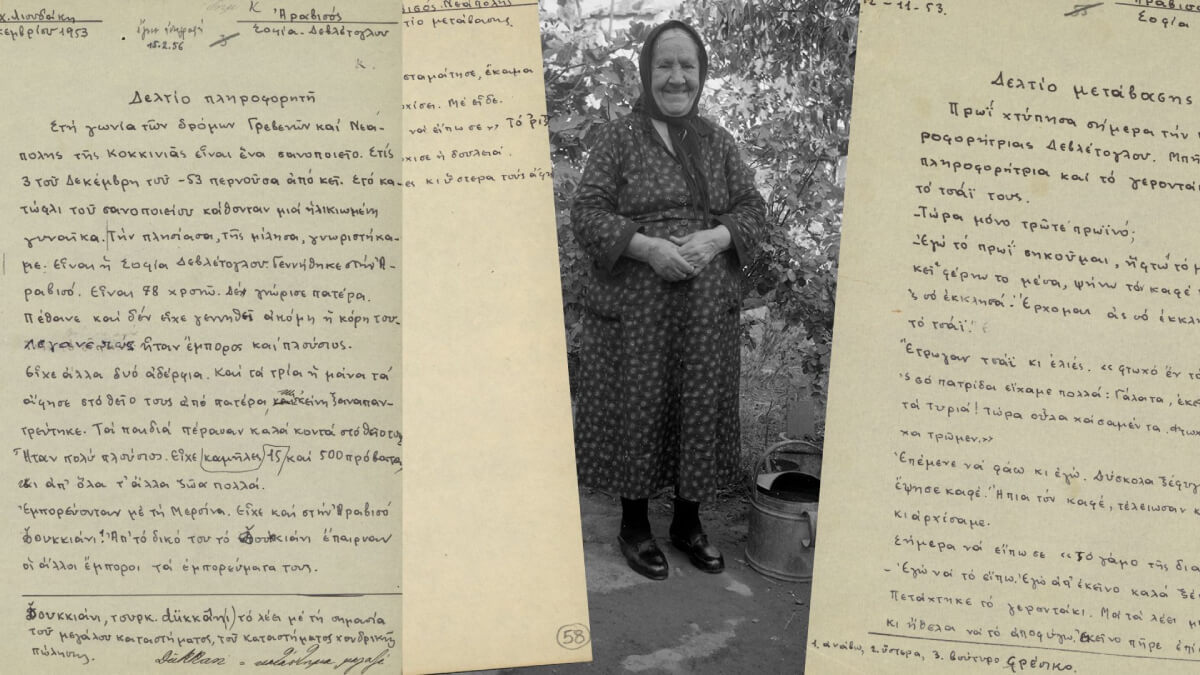 χ. Λιουδάκη
κεμβρίου 1953
15.2.56
Κ
Ἀραβισός
Σοφία Δεβλέτογλου
κ.
Δελτίο πληροφορητῆ
Στή γωνία τῶν δρόμων Γρεβενῶν καί Νεά-
πολης τῆς Κοκκινιᾶς εἶναι ἕνα σαπουνοποιεῖο. Στίς
3 τοῦ Δεκέμβρη τοῦ -53 περνοῦσα ἀπό κεῖ. Στό κα-
τώφλι τοῦ καθόνταν μιά ἡλικιωμένη
γυναῖκα. Τήν πλησίασα, τῆς μίλησα, γνωριστήκα-
με. Εἶναι ἡ Σοφία Δεβλέτογλου. Γεννήθηκε στήν Ἀ-
ραβισό. Εἶναι 78 χρονῶ. Δέν γνώρισε πατέρα.
Πέθανε καί δέν εἶχε γεννηθεῖ ἀκόμη ἡ κόρη του.
Λέγανε πώς ἦταν ἔμπορος καί πλούσιος.
Εἶχε ἄλλα δυό ἀδέρφια. Καί τά τρία ἡ μάνα τά
ἄφησε στό θεῖο τους ἀπό πατέρα, κι ἐκείνη ξαναπαν-
τρεύτηκε. Τά παιδιά πέρασαν καλά κοντά στό θεῖο τους
Ἦταν πολύ πλούσιος. Εἶχε καμῆλες 15 καί 500 πρόβατα,
κι ἀπ' ὅλα τ' ἄλλα ζῶα πολλά.
Ἐμπορεύονταν μέ τή Μερσίνα. Εἶχε καί στήν Ἀραβισό
δουκκιάνι! Ἀπ' τό δικό του τό δουκκιάνι ἔπαιρναν
οἱ ἄλλοι ἔμποροι τά ἐμπορεύματά τους.
δουκκιάνι, τουρκ. dükkân(i) τό λέει μέ τή σημασία
τοῦ μεγάλου καταστήματος, τοῦ καταστήματος χονδρικῆς
πώλησης.
Dükkan = κατάστημα, μαγαζί
ισός Νεάπολης
τίο μετάβασης
σταμάτησε, ἔκαμα
χίσει. Μέ εἶδε.
νά εἴπω σε» Τό
χισε ἡ δουλειά.
ες κι ὕστερα τούς
58
2-11-53.
Ἀραβισός
Σοφία
Δελτίο μετάβασης
Πρωΐ χτύπησα σήμερα τήν
ροφορήτριας Δεβλέτογλου. Μπῆ
πληροφορήτρια καί τό γεροντά
τό τσάϊ τους.
-Τώρα μόνο τρῶτε πρωϊνό;
-Ἐγώ τό πρωΐ σηκοῦμαι,
κεῖ φέρνω το μέσα, ψήνω τόν καφέ
'ς σό ἐκκλησά. Ἔρχομαι ἀς σό ἐκκλη
τό τσάϊ.
Ἔτρωγαν τσάϊ κι ἐλιές. « φτωχό ἔν τό
'ς σό πατρίδα εἴχαμε πολλά: Γάλατα, ἐκεῖ
τά τυριά! Τώρα οὗλα χάσαμέν τα.
καί τρῶμεν.»
Ἐπέμενε νά φάω κι ἐγώ. Δύσκολα ξέφυγ
ἔψησε καφέ. Ἤπια τόν καφέ, τέλειωσαν κ
κι ἀρχίσαμε.
Σήμερα νά εἴπω σε «Τό γάμο τῆς δια
-Ἐγώ νά τό εἴπω. Ἐγώ ἀπ' ἐκεῖνο καλά ξέ
Πετάχτηκε τό γεροντάκι. Μά τά λέει μ
κι ἤθελα νά τό ἀποφύγω. Ἐκεῖνο πῆρε ἐπί
1. ἀνάβω, 2. ὕστερα, 3. βούτυρο φρέσκο.